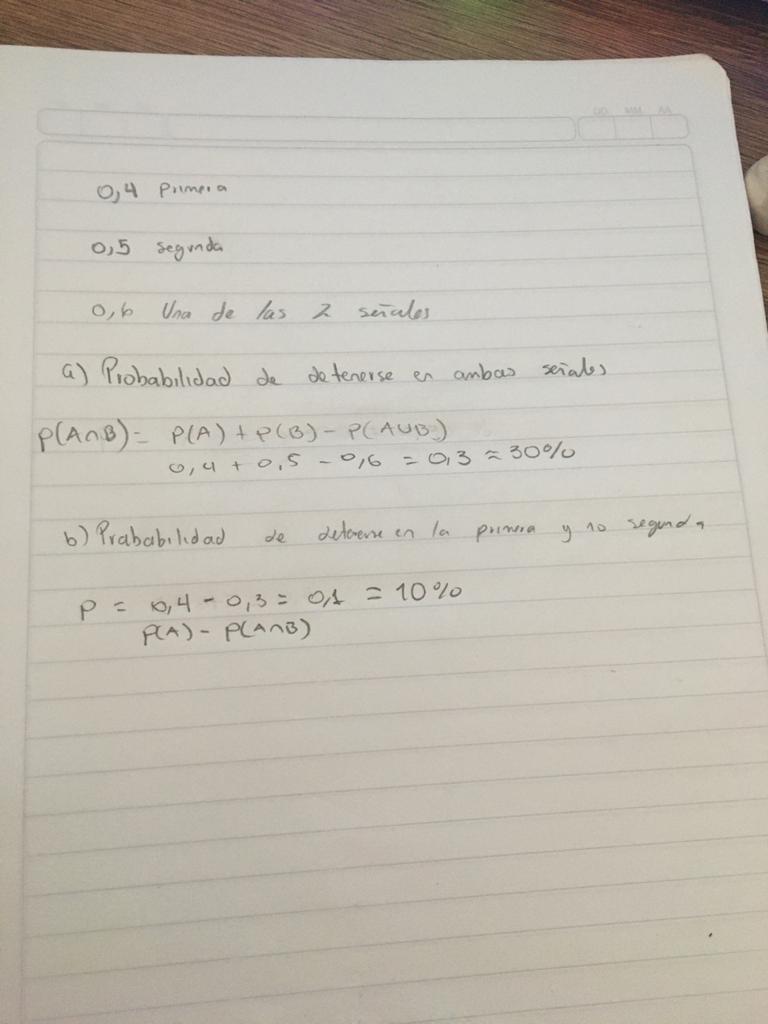 DD MM AA
0,4 Primera
0,5 segunda
0,6 Una de las 2 señales
a) Probabilidad de detenerse en ambas señales
P(A∩B) = P(A) + P(B) - P(A∪B)
0,4 + 0,5 - 0,6 = 0,3 ≈ 30%
b) Prababilidad de detenerse en la primera y no segunda
P = 0,4 - 0,3 = 0,1 = 10%
P(A) - P(A∩B)